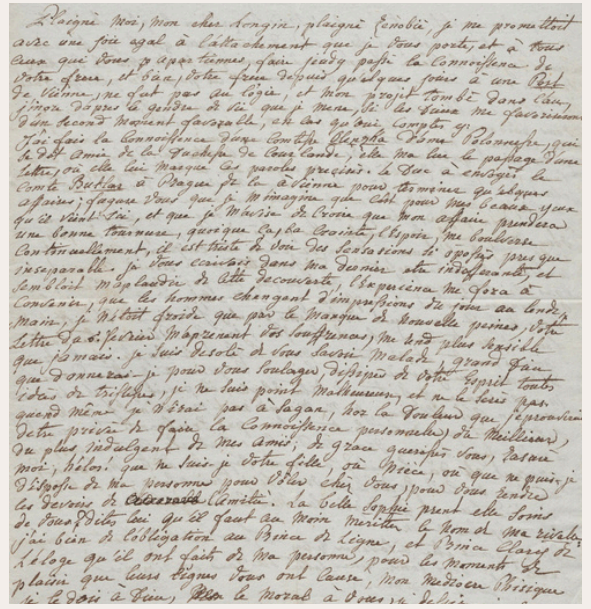 Plaigné moi, mon cher Longin, plaigné Zenobie, je me promettoit
avec une joie agal à l'attachement que je vous porte, et à tous
ceux que vous apartiennes, faire jeudy passé la Connoissence de
votre frere, et bien, votre frere depuis quelques jours à une Port
de Vienne, ne fut pas au logie, et mon projet tombe dans l'au,
j'inore d'apres le gendre de vie que je mene, si les Dieux me favoriseron
d'un second moment favorable, en cas qu'oui comptes y.
J'ai fais la Connoissence d'une Comtesse d'ome Polonnoise, qui
se dit amie de la Duchesse de Courlande, elle ma lue le passage d'une
lettre, où elle lui marque les paroles precises. le Duc à envoyés le
Comte Butlar à Prague de la a Vienne pour terminer quelques
affaires; figure vous que je m'imagine que c'est pour mes beaux yeux
qu'il vient ici, et que je m'avise de croire que mon affaire prendera
une bonne tournure, quoique la Crainte, l'Espoir, me boulverse
Continuellement, il est triste de voir des sensations si oposées presque
inseparable. je vous ecrivais dans ma derniere etre indiferente, et
sembloit m'aplaudir de cette decouverte, l'Experience me forca à
Convenir, que les hommes chengent d'impressions du jour au lende-
main, je n'étoit froide que par le manque de nouvelle peines, votre
Lettre du 6. fevrier m'aprenent vos souffrences, me rend plus sensible
que jamais. je suis desolé de vous savoir malade, grand Dieu
que donnerai-je pour vous soulager dissiper de votre Esprit toutes
idées de tristesses, je ne suis point malheureux, et ne le serés pas
quend même je n'irai pas à Sagan, hor la Douleur que j'eprouverois
d'etre privée de faire la Connoissence personnelle, du Meilleur,
du plus indulgent de mes amis; de grace querisés vous,
moi, helas! que ne suis-je votre fille, où Niéce, où que ne puis-je
disposée de ma personne pour voler chez vous, pour vous rendre
les devoirs de l'amitié. La belle Sophie prent elle soins
de vous? dites lui qu'il faut au moin meritter le nom de ma rivale.
j'ai bien de l'obligation au Prince de Ligne, et Prince Clary de
L'éloge qu'il ont fait de ma personne, pour les moments de
plaisir que leurs lignes vous ont causé, mon mediocre Phisique
je le dois à Dieu, le moral à vous,